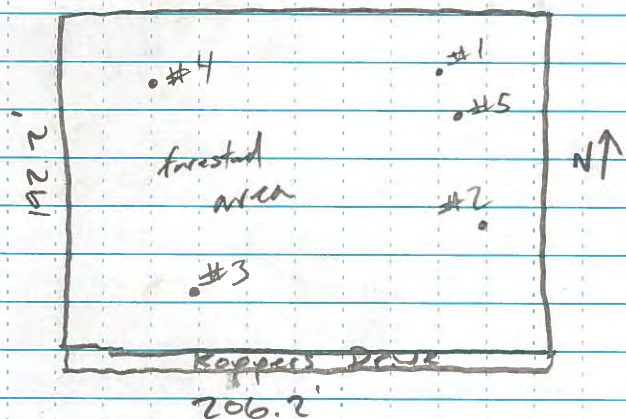 #1
#4
#5
forested
area
#2
#3
N
192.2'
Koppers Drive
206.2'